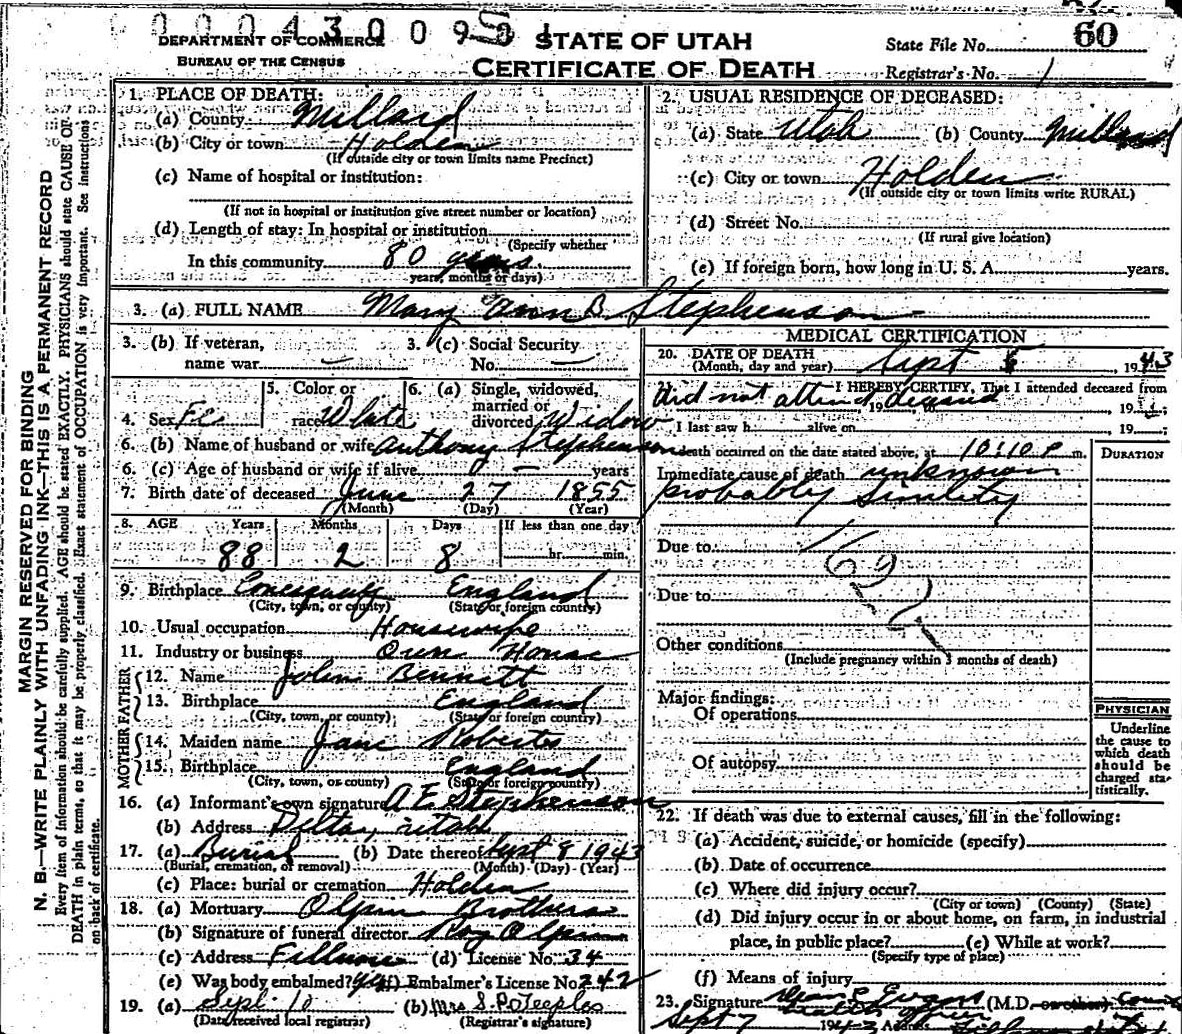 0 0 0 4 3 0 0 9
DEPARTMENT OF COMMERCE
BUREAU OF THE CENSUS
STATE OF UTAH
CERTIFICATE OF DEATH
State File No. 60
Registrar's No. 1
MARGIN RESERVED FOR BINDING
N. B—WRITE PLAINLY WITH UNFADING INK—THIS IS A PERMANENT RECORD
Every item of information should be carefully supplied. AGE should be stated EXACTLY. PHYSICIANS should state CAUSE OF
DEATH in plain terms, so that it may be properly classified. Exact statement of OCCUPATION is very important. See instructions
on back of certificate.
1. PLACE OF DEATH:
(a) County Millard
(b) City or town Holden
(If outside city or town limits name Precinct)
(c) Name of hospital or institution:
(If not in hospital or institution give street number or location)
(d) Length of stay: In hospital or institution
(Specify whether
In this community 80 years.
years, months or days)
2. USUAL RESIDENCE OF DECEASED:
(a) State Utah (b) County Millard
(c) City or town Holden
(If outside city or town limits write RURAL)
(d) Street No.
(If rural give location)
(e) If foreign born, how long in U. S. A. years.
3. (a) FULL NAME Mary Ann B. Stephenson
3. (b) If veteran, name war —
3. (c) Social Security No. —
4. Sex Fe
5. Color or race White
6. (a) Single, widowed, married or divorced Widow
6. (b) Name of husband or wife Anthony Stephenson
6. (c) Age of husband or wife if alive — years
7. Birth date of deceased June 27 1855
(Month) (Day) (Year)
8. AGE Years Months Days If less than one day
88 2 8 hr. min.
9. Birthplace England
(City, town, or county) (State or foreign country)
10. Usual occupation Housewife
11. Industry or business Own House
FATHER
12. Name John Bennett
13. Birthplace England
(City, town, or county) (State or foreign country)
MOTHER
14. Maiden name Jane Roberts
15. Birthplace England
(City, town, or county) (State or foreign country)
16. (a) Informant's own signature A E Stephenson
(b) Address Delta, Utah
17. (a) Burial (b) Date thereof Sept 8 1943
(Burial, cremation, or removal) (Month) (Day) (Year)
(c) Place: burial or cremation Holden
18. (a) Mortuary Olpin Brothers
(b) Signature of funeral director Roy Olpin
(c) Address Fillmore (d) License No. 34
(e) Was body embalmed? yes (f) Embalmer's License No. 242
19. (a) Sept 10 (b) Mrs S. P. Teeples
(Date received local registrar) (Registrar's signature)
MEDICAL CERTIFICATION
20. DATE OF DEATH
(Month, day and year) Sept 5, 1943
I HEREBY CERTIFY, That I attended deceased from
did not attend
, 19 , to , 19 ;
I last saw h alive on , 19 ;
death occurred on the date stated above, at 10:10 P m.
Immediate cause of death unknown
probably senility
DURATION
Due to
162
Due to
Other conditions
(Include pregnancy within 3 months of death)
Major findings:
Of operations
Of autopsy
PHYSICIAN
Underline
the cause to
which death
should be
charged sta-
tistically.
22. If death was due to external causes, fill in the following:
(a) Accident, suicide, or homicide (specify)
(b) Date of occurrence
(c) Where did injury occur?
(City or town) (County) (State)
(d) Did injury occur in or about home, on farm, in industrial
place, in public place? (e) While at work?
(Specify type of place)
(f) Means of injury
23. Signature Evans (M.D. or other)
Sept 7 1943 Health Officer